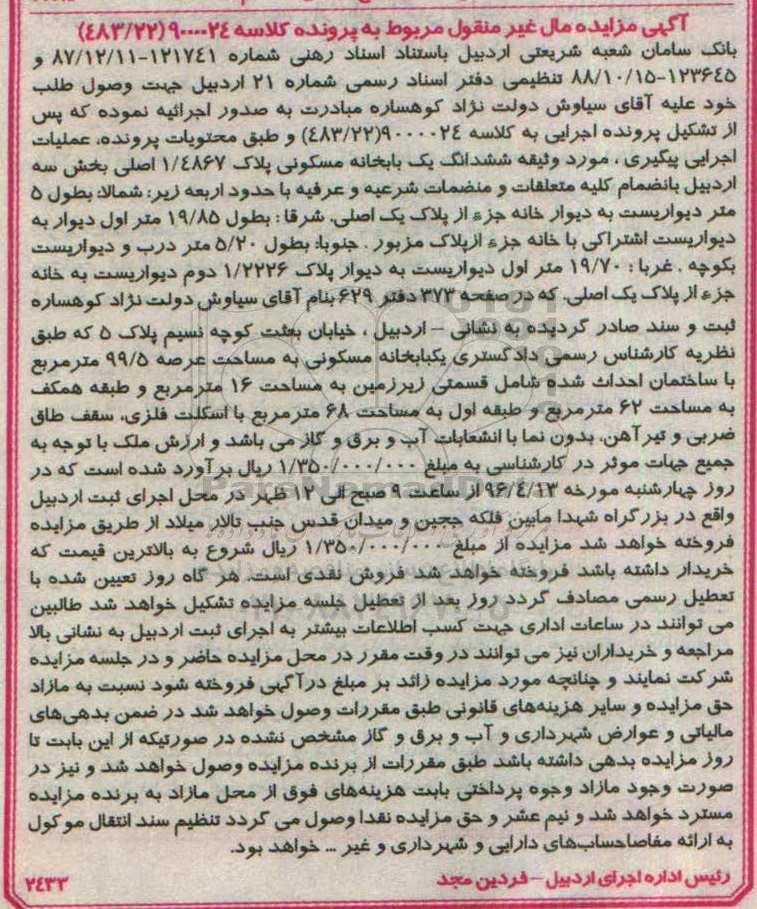 آگهی مزایده مال غیر منقول مربوط به پرونده کلاسه ۹۰۰۰۰۲٤ (٤٨٣/٢٢)
بانک سامان شعبه شریعتی اردبیل باستناد اسناد رهنی شماره ۱۲۱۷٤۱-۸۷/۱۲/۱۱ و
۱۲۳۶٤۵-۸۸/۱۰/۱۵ تنظیمی دفتر اسناد رسمی شماره ۲۱ اردبیل جهت وصول طلب
خود علیه آقای سیاوش دولت نژاد کوهساره مبادرت به صدور اجرائیه نموده که پس
از تشکیل پرونده اجرایی به کلاسه ۹۰۰۰۰۲٤(٤٨٣/٢٢) و طبق محتویات پرونده، عملیات
اجرایی پیگیری ، مورد وثیقه ششدانگ یک بابخانه مسکونی پلاک ۱/٤۸۶۷ اصلی بخش سه
اردبیل بانضمام کلیه متعلقات و منضمات شرعیه و عرفیه با حدود اربعه زیر: شمالا: بطول ۵
متر دیواریست به دیوار خانه جزء از پلاک یک اصلی. شرقا : بطول ۱۹/۸۵ متر اول دیوار به
دیواریست اشتراکی با خانه جزء ازپلاک مزبور . جنوبا: بطول ۵/۲۰ متر درب و دیواریست
بکوچه . غربا : ۱۹/۷۰ متر اول دیواریست به دیوار پلاک ۱/۲۲۲۶ دوم دیواریست به خانه
جزء از پلاک یک اصلی. که در صفحه ۳۷۳ دفتر ۶۲۹ بنام آقای سیاوش دولت نژاد کوهساره
ثبت و سند صادر گردیده به نشانی – اردبیل ، خیابان بعثت کوچه نسیم پلاک ۵ که طبق
نظریه کارشناس رسمی دادگستری یکبابخانه مسکونی به مساحت عرصه ۹۹/۵ مترمربع
با ساختمان احداث شده شامل قسمتی زیرزمین به مساحت ۱۶ مترمربع و طبقه همکف
به مساحت ۶۲ مترمربع و طبقه اول به مساحت ۶۸ مترمربع با اسکلت فلزی، سقف طاق
ضربی و تیرآهن، بدون نما با انشعابات آب و برق و گاز می باشد و ارزش ملک با توجه به
جمیع جهات موثر در کارشناسی به مبلغ ۱/۳۵۰/۰۰۰/۰۰۰ ریال برآورد شده است که در
روز چهارشنبه مورخه ۹۶/٤/۱۳ از ساعت ۹ صبح الی ۱۲ ظهر در محل اجرای ثبت اردبیل
واقع در بزرگراه شهدا مابین فلکه ججین و میدان قدس جنب تالار میلاد از طریق مزایده
فروخته خواهد شد مزایده از مبلغ ۱/۳۵۰/۰۰۰/۰۰۰ ریال شروع به بالاترین قیمت که
خریدار داشته باشد فروخته خواهد شد فروش نقدی است. هر گاه روز تعیین شده با
تعطیل رسمی مصادف گردد روز بعد از تعطیل جلسه مزایده تشکیل خواهد شد طالبین
می توانند در ساعات اداری جهت کسب اطلاعات بیشتر به اجرای ثبت اردبیل به نشانی بالا
مراجعه و خریداران نیز می توانند در وقت مقرر در محل مزایده حاضر و در جلسه مزایده
شرکت نمایند و چنانچه مورد مزایده زائد بر مبلغ درآگهی فروخته شود نسبت به مازاد
حق مزایده و سایر هزینه‌های قانونی طبق مقررات وصول خواهد شد در ضمن بدهی‌های
مالیاتی و عوارض شهرداری و آب و برق و گاز مشخص نشده در صورتیکه از این بابت تا
روز مزایده بدهی داشته باشد طبق مقررات از برنده مزایده وصول خواهد شد و نیز در
صورت وجود مازاد وجوه پرداختی بابت هزینه‌های فوق از محل مازاد به برنده مزایده
مسترد خواهد شد و نیم عشر و حق مزایده نقدا وصول می گردد تنظیم سند انتقال موکول
به ارائه مفاصاحساب‌های دارایی و شهرداری و غیر ... خواهد بود.
رئیس اداره اجرای اردبیل – فردین مجد
۲٤۳۳